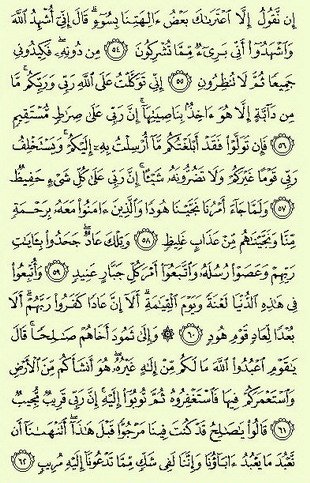 إِن نَّقُولُ إِلَّا ٱعۡتَرَىٰكَ بَعۡضُ ءَالِهَتِنَا بِسُوٓءٖۗ قَالَ إِنِّيٓ أُشۡهِدُ ٱللَّهَ
وَٱشۡهَدُوٓاْ أَنِّي بَرِيٓءٞ مِّمَّا تُشۡرِكُونَ ٥٤ مِن دُونِهِۦۖ فَكِيدُونِي
جَمِيعٗا ثُمَّ لَا تُنظِرُونِ ٥٥ إِنِّي تَوَكَّلۡتُ عَلَى ٱللَّهِ رَبِّي وَرَبِّكُمۚ مَّا
مِن دَآبَّةٍ إِلَّا هُوَ ءَاخِذُۢ بِنَاصِيَتِهَآۚ إِنَّ رَبِّي عَلَىٰ صِرَٰطٖ مُّسۡتَقِيمٖ
٥٦ فَإِن تَوَلَّوۡاْ فَقَدۡ أَبۡلَغۡتُكُم مَّآ أُرۡسِلۡتُ بِهِۦٓ إِلَيۡكُمۡۚ وَيَسۡتَخۡلِفُ
رَبِّي قَوۡمًا غَيۡرَكُمۡ وَلَا تَضُرُّونَهُۥ شَيۡـًٔاۚ إِنَّ رَبِّي عَلَىٰ كُلِّ شَيۡءٍ حَفِيظٞ
٥٧ وَلَمَّا جَآءَ أَمۡرُنَا نَجَّيۡنَا هُودٗا وَٱلَّذِينَ ءَامَنُواْ مَعَهُۥ بِرَحۡمَةٖ
مِّنَّا وَنَجَّيۡنَٰهُم مِّنۡ عَذَابٍ غَلِيظٖ ٥٨ وَتِلۡكَ عَادٞۖ جَحَدُواْ بِـَٔايَٰتِ
رَبِّهِمۡ وَعَصَوۡاْ رُسُلَهُۥ وَٱتَّبَعُوٓاْ أَمۡرَ كُلِّ جَبَّارٍ عَنِيدٖ ٥٩ وَأُتۡبِعُواْ
فِي هَٰذِهِ ٱلدُّنۡيَا لَعۡنَةٗ وَيَوۡمَ ٱلۡقِيَٰمَةِۗ أَلَآ إِنَّ عَادٗا كَفَرُواْ رَبَّهُمۡۗ أَلَا
بُعۡدٗا لِّعَادٖ قَوۡمِ هُودٖ ٦٠ ۞ وَإِلَىٰ ثَمُودَ أَخَاهُمۡ صَٰلِحٗاۚ قَالَ
يَٰقَوۡمِ ٱعۡبُدُواْ ٱللَّهَ مَا لَكُم مِّنۡ إِلَٰهٍ غَيۡرُهُۥۖ هُوَ أَنشَأَكُم مِّنَ ٱلۡأَرۡضِ
وَٱسۡتَعۡمَرَكُمۡ فِيهَا فَٱسۡتَغۡفِرُوهُ ثُمَّ تُوبُوٓاْ إِلَيۡهِۚ إِنَّ رَبِّي قَرِيبٞ مُّجِيبٞ
٦١ قَالُواْ يَٰصَٰلِحُ قَدۡ كُنتَ فِينَا مَرۡجُوّٗا قَبۡلَ هَٰذَآۖ أَتَنۡهَىٰنَآ أَن
نَّعۡبُدَ مَا يَعۡبُدُ ءَابَآؤُنَا وَإِنَّنَا لَفِي شَكّٖ مِّمَّا تَدۡعُونَآ إِلَيۡهِ مُرِيبٖ ٦٢